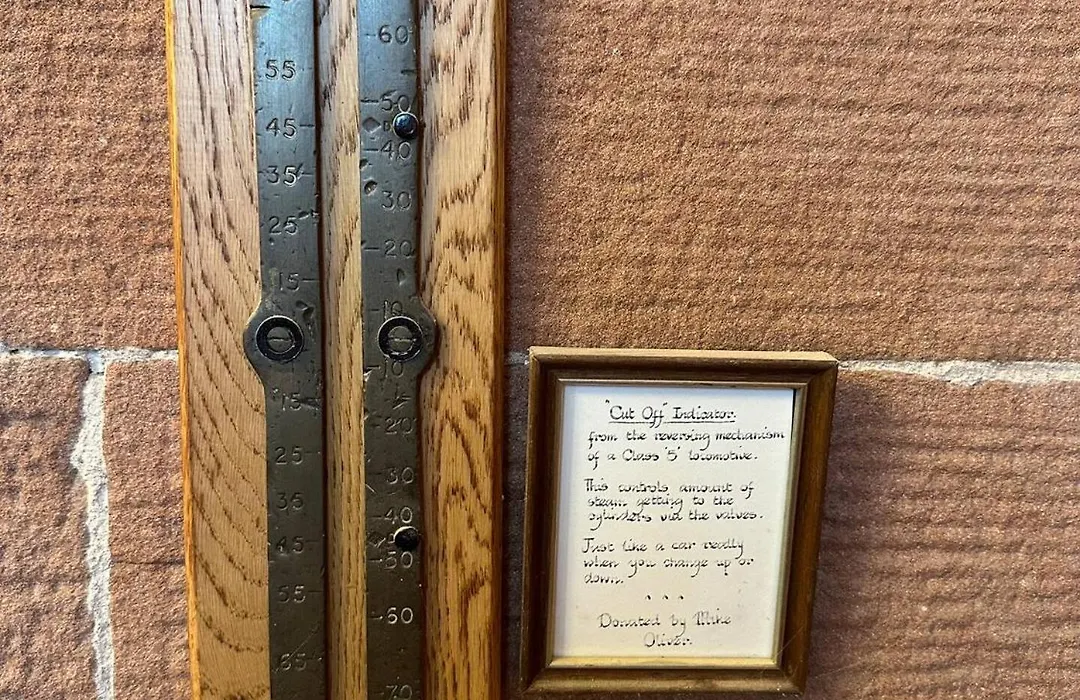 55
45
35
25
15
15
25
35
45
55
65
60
50
40
30
20
10
10
20
30
40
50
60
70
"Cut Off" Indicator.
from the reversing mechanism
of a Class '5' locomotive.
This controls amount of
steam getting to the
cylinders via the valves.
Just like a car really
when you change up or
down.
. . .
Donated by Mike
Oliver.